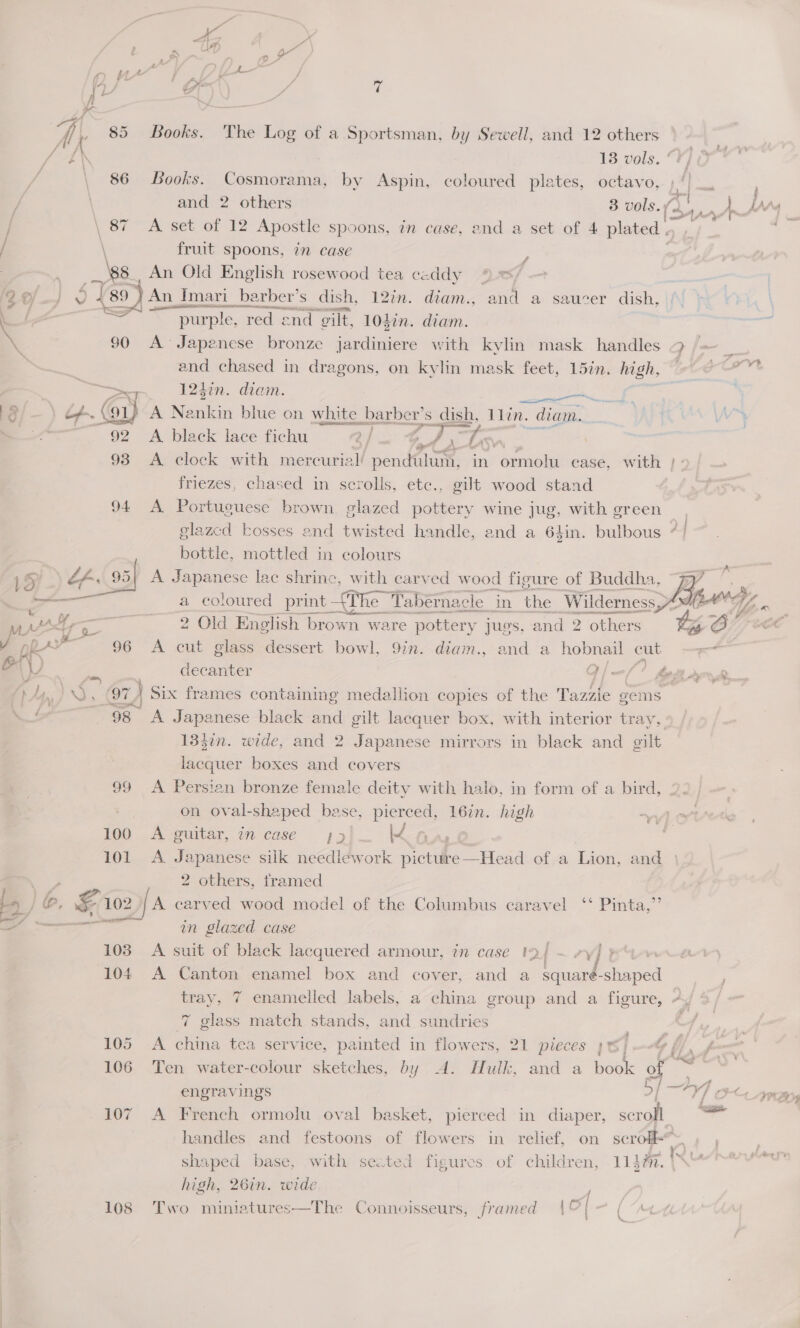 7
85 Books. The Log of a Sportsman, by Sewell, and 12 others
13 vols.
86 Books. Cosmorama, by Aspin, coloured plates, octavo,
and 2 others 3 vols.
87 A set of 12 Apostle spoons, in case, and a set of 4 plated
fruit spoons, in case
88 An Old English rosewood tea caddy
89 An Imari barber's dish, 12in. diam., and a saucer dish,
purple, red and gilt, 10½in. diam.
90 A Japanese bronze jardiniere with kylin mask handles
and chased in dragons, on kylin mask feet, 15in. high,
12½in. diam.
91 A Nankin blue on white barber's dish, 11in. diam.
92 A black lace fichu
93 A clock with mercurial pendulum, in ormolu case, with
friezes, chased in scrolls, etc., gilt wood stand
94 A Portuguese brown glazed pottery wine jug, with green
glazed bosses and twisted handle, and a 6½in. bulbous
bottle, mottled in colours
95 A Japanese lac shrine, with carved wood figure of Buddha,
a coloured print (The Tabernacle in the Wilderness)
2 Old English brown ware pottery jugs, and 2 others
96 A cut glass dessert bowl, 9in. diam., and a hobnail cut
decanter
97 Six frames containing medallion copies of the Tazzie gems
98 A Japanese black and gilt lacquer box, with interior tray,
13½in. wide, and 2 Japanese mirrors in black and gilt
lacquer boxes and covers
99 A Persian bronze female deity with halo, in form of a bird,
on oval-shaped base, pierced, 16in. high
100 A guitar, in case
101 A Japanese silk needlework picture—Head of a Lion, and
2 others, framed
102 A carved wood model of the Columbus caravel "Pinta,"
in glazed case
103 A suit of black lacquered armour, in case
104 A Canton enamel box and cover, and a square-shaped
tray, 7 enamelled labels, a china group and a figure,
7 glass match stands, and sundries
105 A china tea service, painted in flowers, 21 pieces
106 Ten water-colour sketches, by A. Hulk, and a book of
engravings
107 A French ormolu oval basket, pierced in diaper, scroll
handles and festoons of flowers in relief, on scroll-
shaped base, with seated figures of children, 11½in.
high, 26in. wide
108 Two miniatures—The Connoisseurs, framed